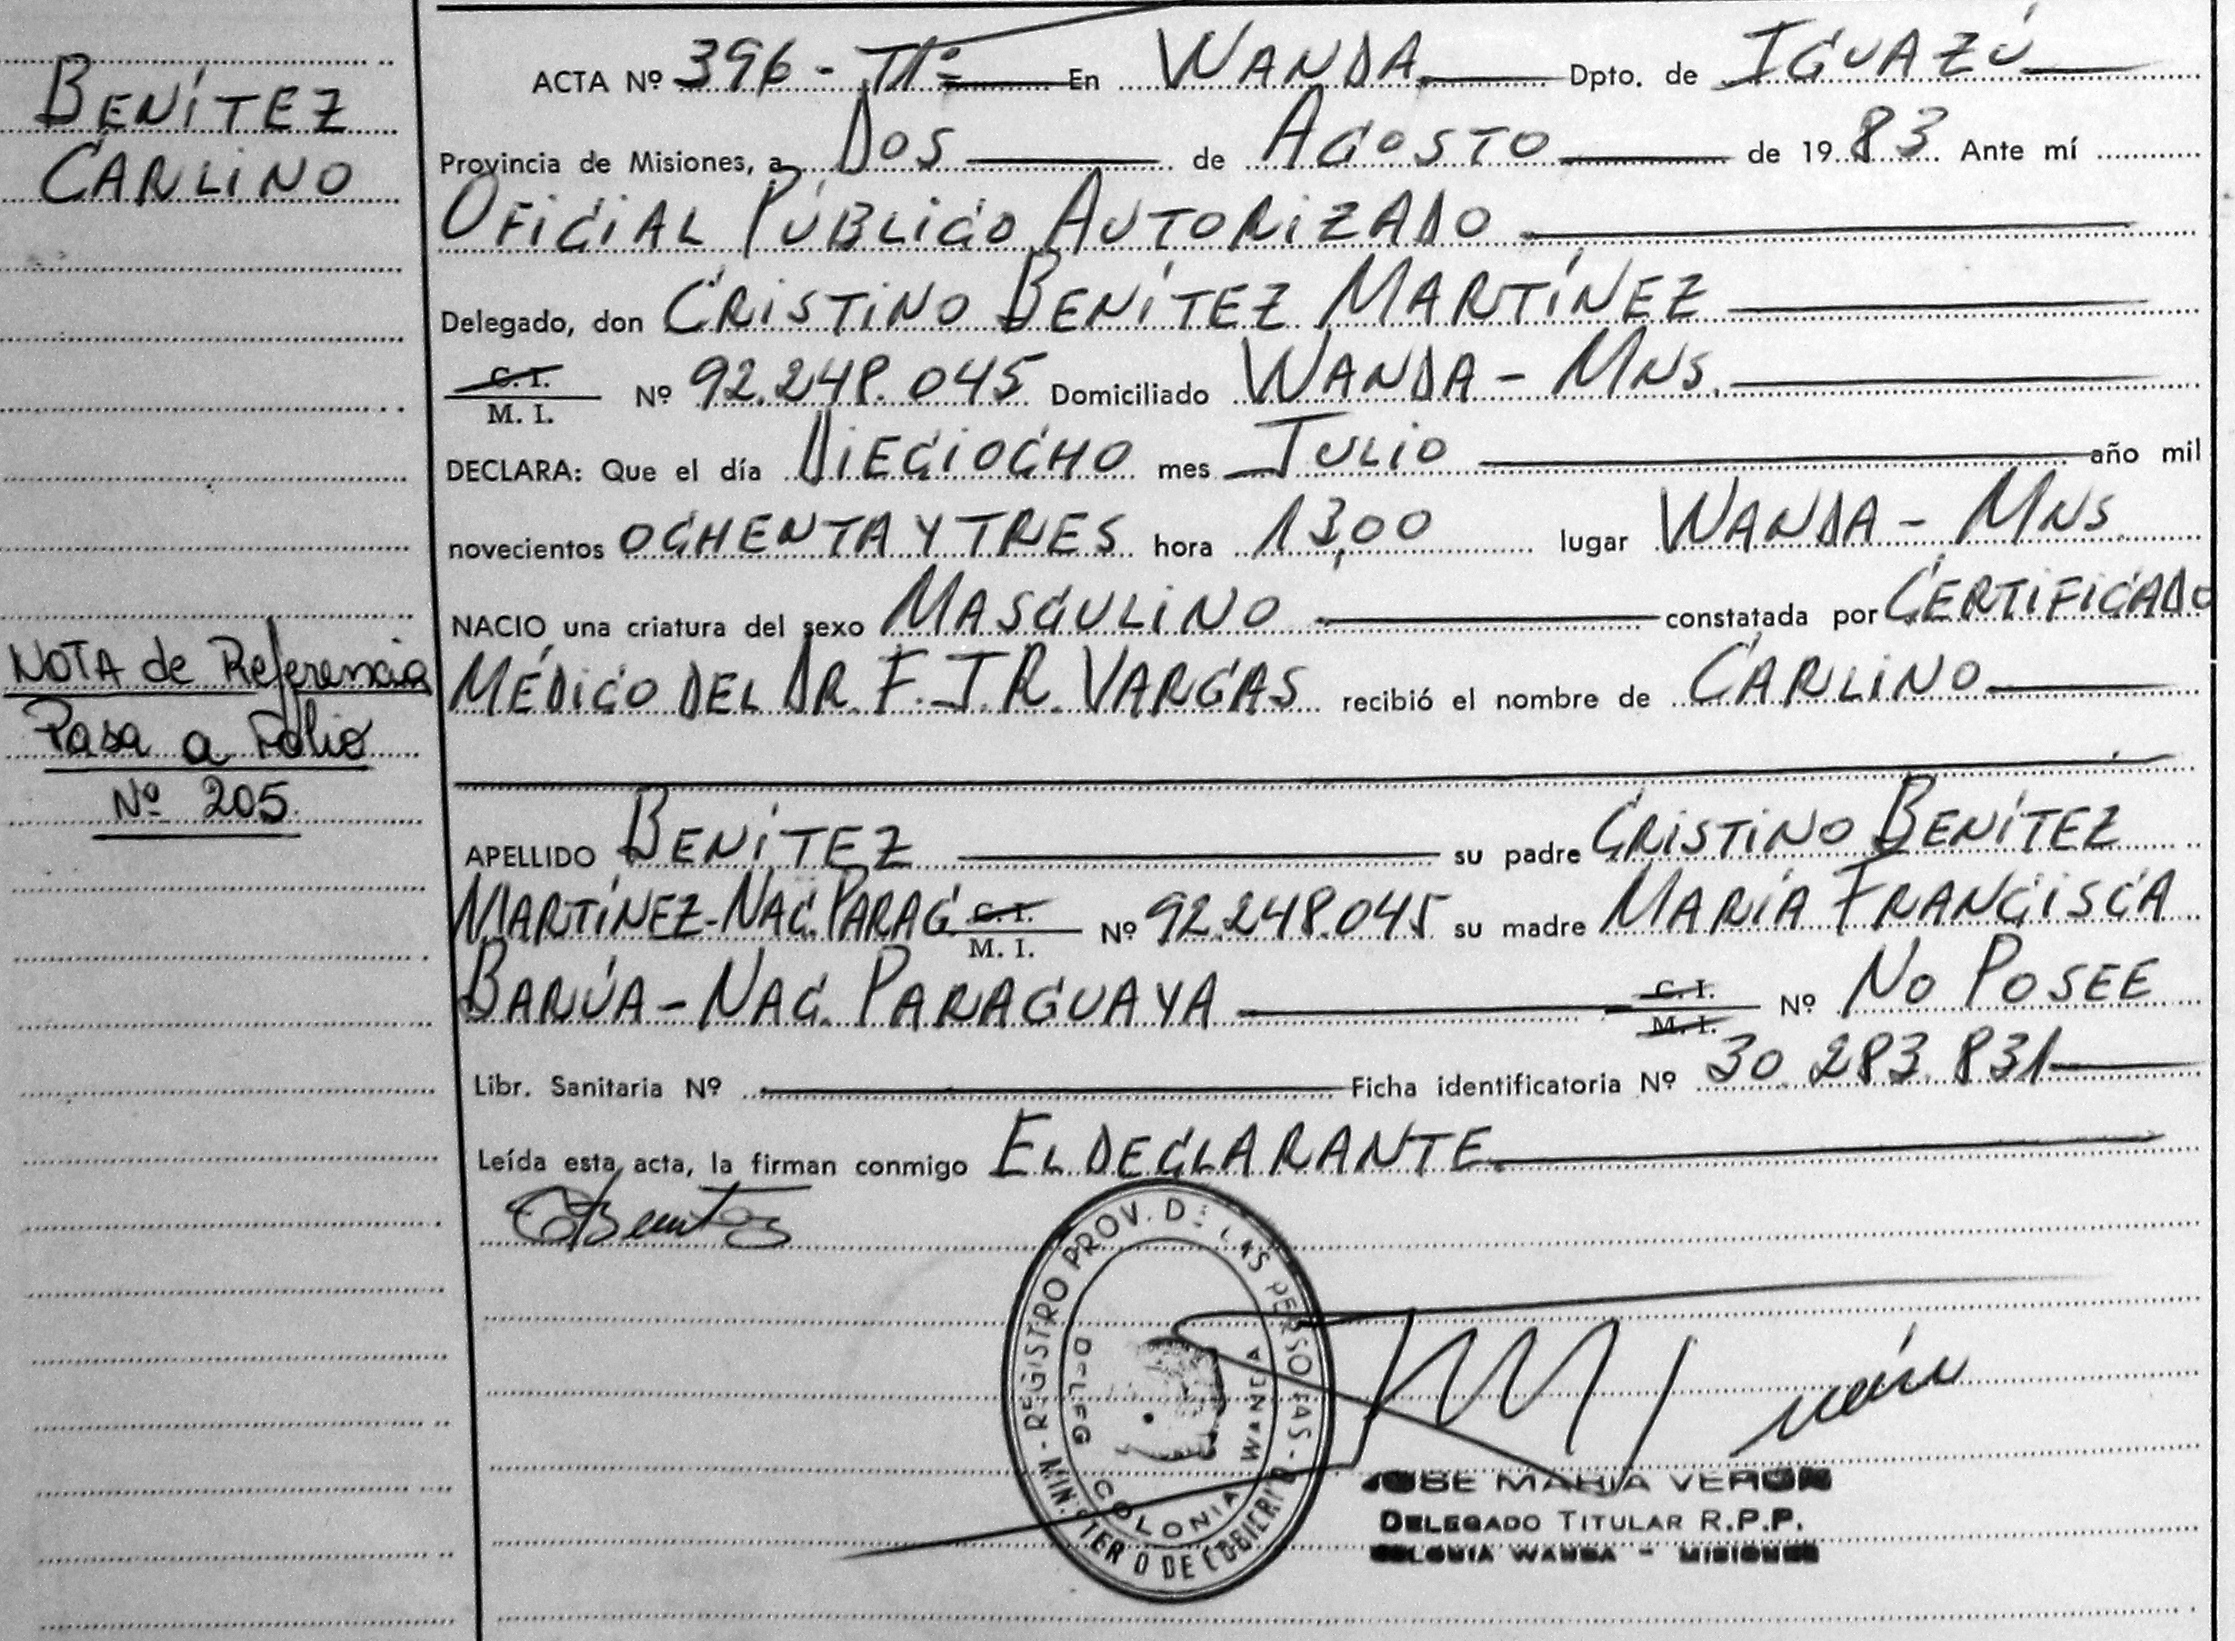 BENÍTEZ
CARLINO
NOTA de Referencia
Pasa a Folio
Nº 205.
ACTA Nº 396 - Tº En WANDA Dpto. de IGUAZÚ
Provincia de Misiones, a DOS de AGOSTO de 1983 Ante mí
OFICIAL PÚBLICO AUTORIZADO
Delegado, don CRISTINO BENÍTEZ MARTÍNEZ
C. I.
M. I. Nº 92.248.045 Domiciliado WANDA - MNS.
DECLARA: Que el día DIECIOCHO mes JULIO año mil
novecientos OCHENTA Y TRES hora 13,00 lugar WANDA - MNS.
NACIO una criatura del sexo MASCULINO constatada por CERTIFICADO
MÉDICO DEL DR. F. J. R. VARGAS recibió el nombre de CARLINO
APELLIDO BENÍTEZ su padre CRISTINO BENÍTEZ
MARTÍNEZ - NAC. PARAG. C. I. M. I. Nº 92.248.045 su madre MARÍA FRANCISCA
BARÚA - NAC. PARAGUAYA C. I. M. I. Nº NO POSEE
Libr. Sanitaria Nº Ficha identificatoria Nº 30.283.831
Leída esta acta, la firman conmigo EL DECLARANTE.
REGISTRO PROV. DE LAS PERSONAS - MINISTERIO DE GOBIERNO -
COLONIA WANDA
JOSE MARIA VERON
DELEGADO TITULAR R.P.P.
COLONIA WANDA - MISIONES